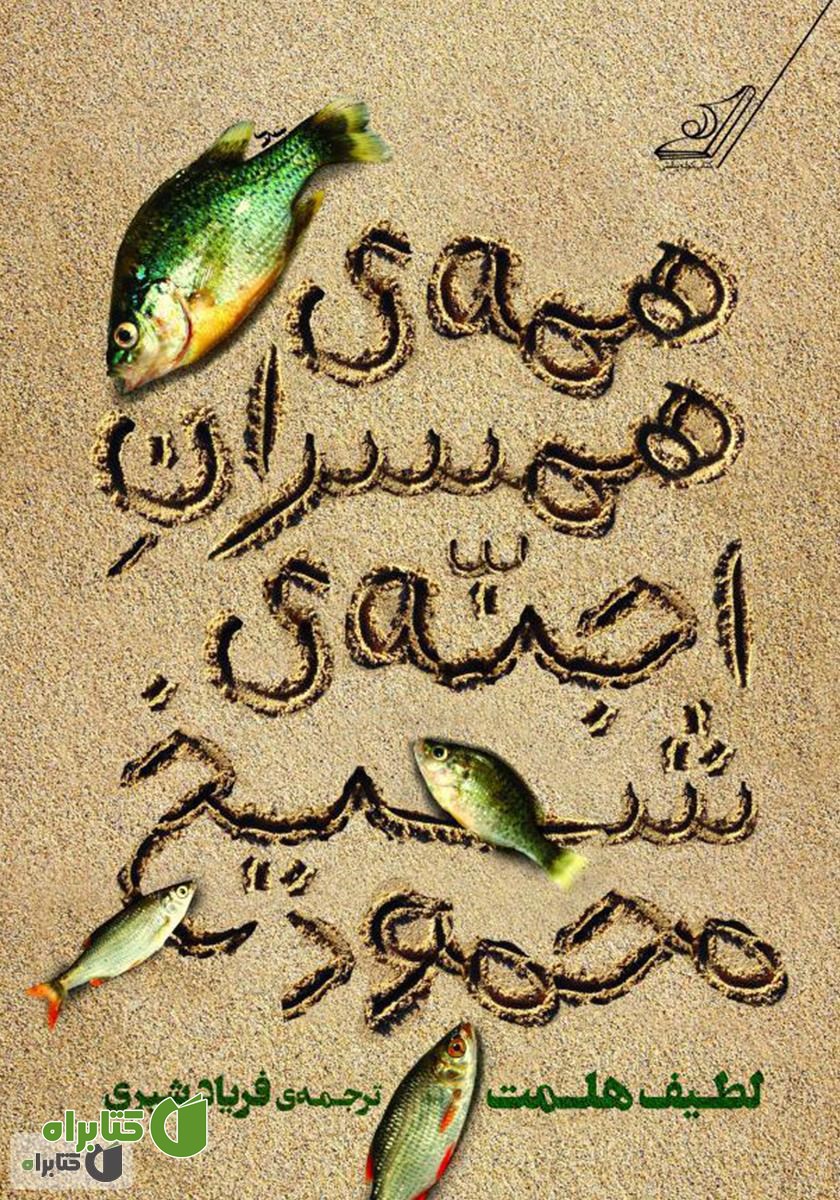 کتاب کوله پشتی
همه‌ی
همسرانِ
اجنّه‌ی
شیخ
محمود
لطیف هلمت
ترجمه‌ی فریاد شیری
کتابراه
کتابراه